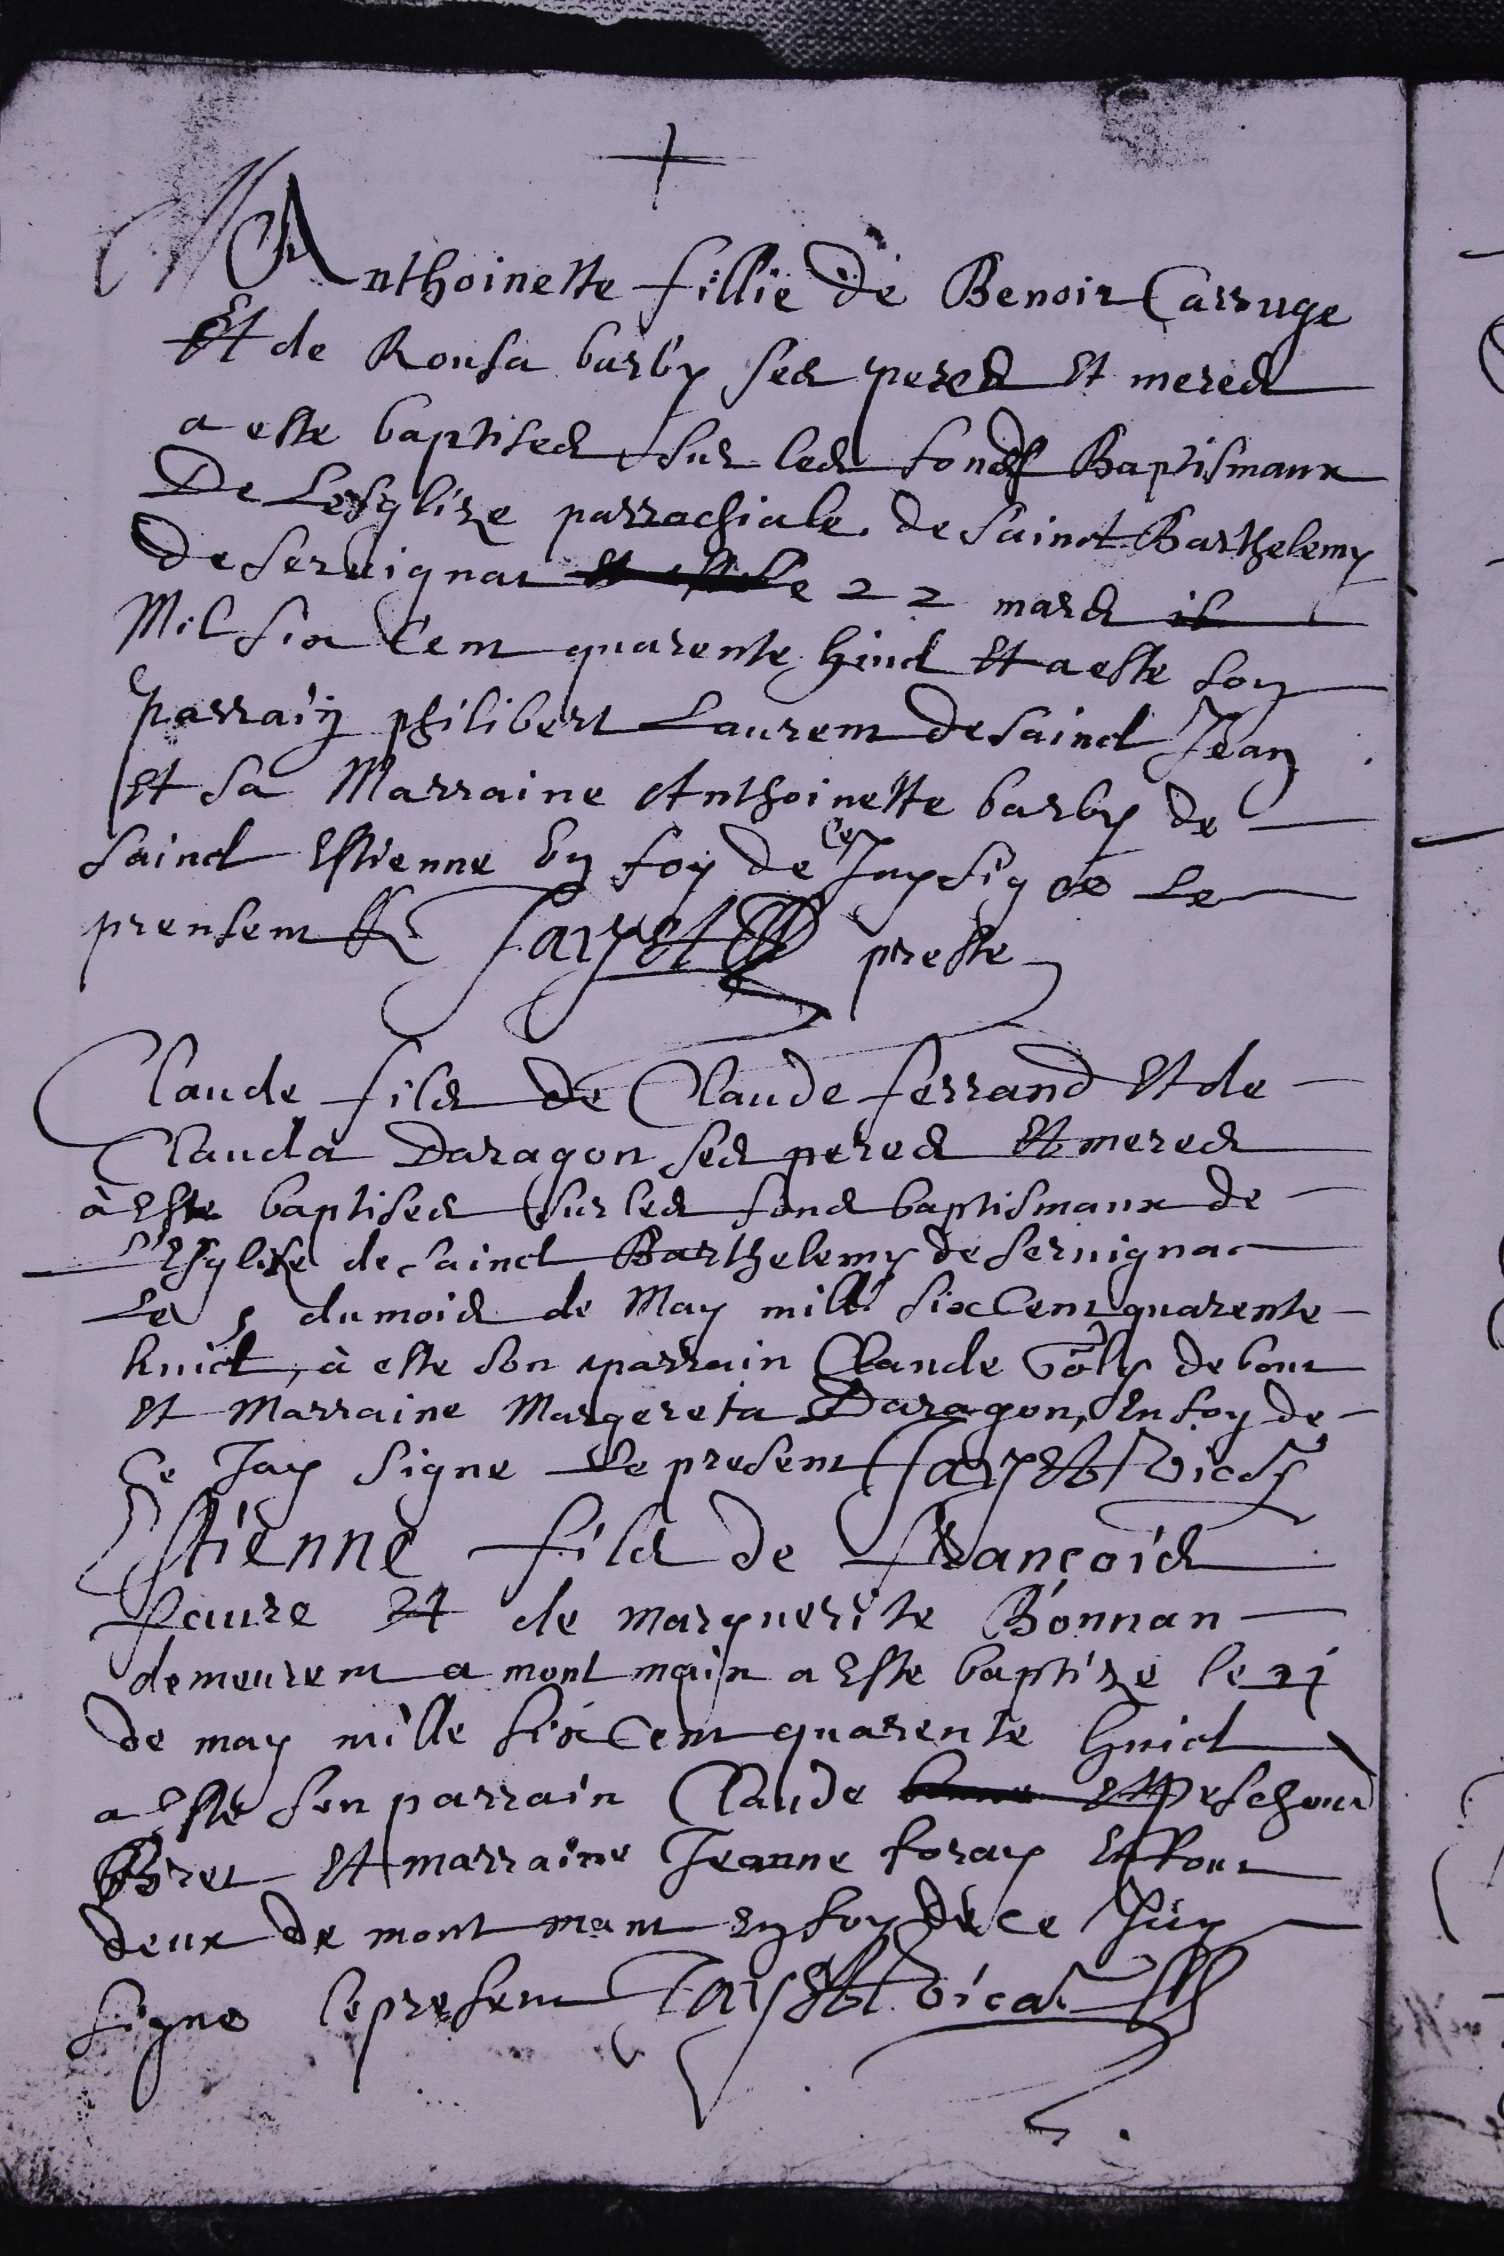 Anthoinette fillie de Benoit Carruge
Et de Rousa barby ses peres et meres
a este baptises sur les fonds Baptismaux
De Lesglize parrachiale de sainct Barthelemy
de servignat le 22 mars
Mil six Cent quarente huict et a este son
parrain philibert Laurent de sainct Jean
et sa Marraine Anthoinette barby de
sainct Estienne En foy de ce Jay signe Le
prensent Jayet prestre
Claude fils de Claude ferrand et de
Clauda Daragon ses peres et meres
à este baptises sur les fons baptismaux de
L'Esglize de sainct Barthelemy de servignat
Le 5 du mois de May mille six Cent quarente
huict, à este son parrain Claude de bout
et Marraine Margereta Daragon, En foy de
Ce Jay signe Le present Jayet vicaire
Estienne fils de françois
favre et de marguerite Bonnan
demeurent a mont main a este baptize le
de may mille six Cent quarente huict
a esté son parrain Claude
et marraine Jeanne foray et tout
deux de mont mant en foy de ce Jay
signe le present Jayet vicaire